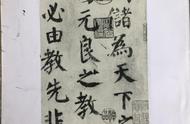 儲為天下之
元良之教
必由教先非